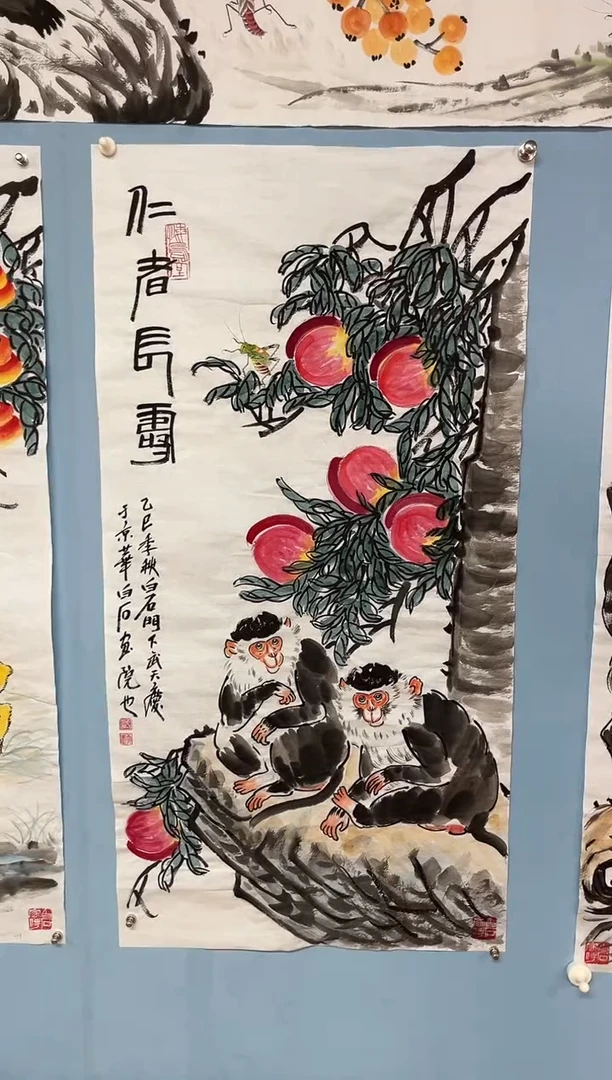 仁者長壽
乙巳季秋白石門下武天慶
于京華白石画院也